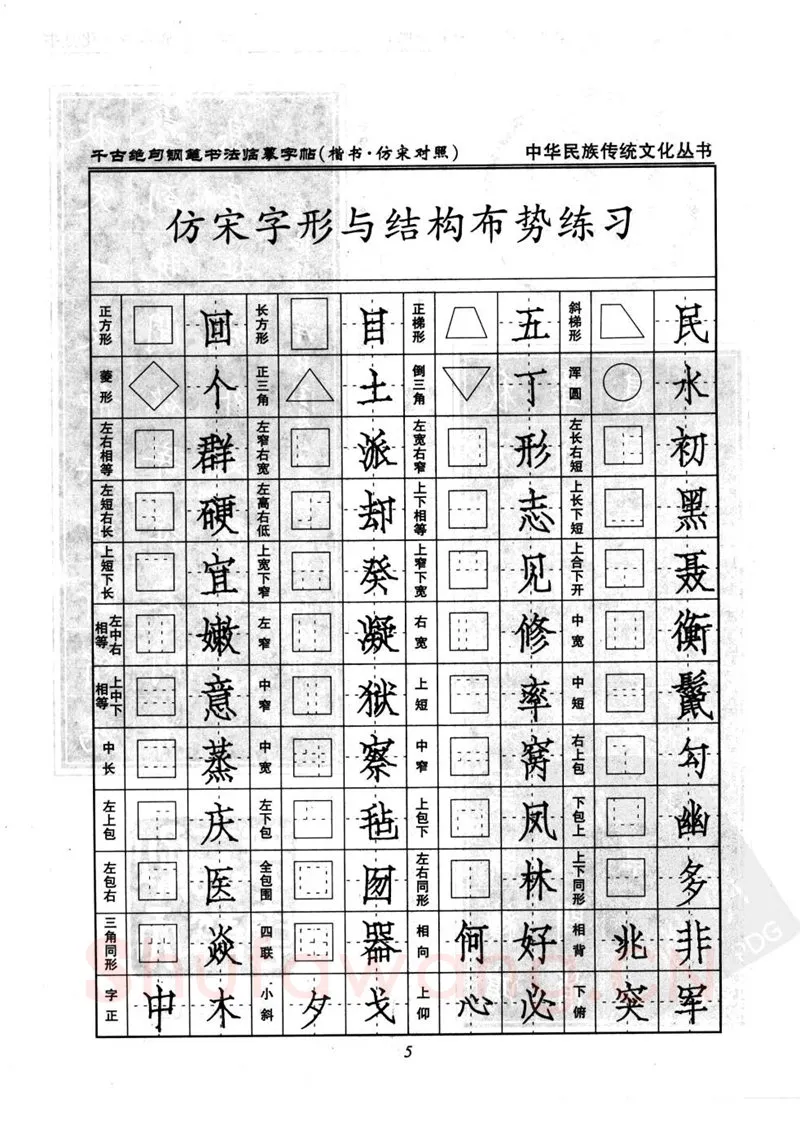 千古绝句钢笔书法临摹字帖(楷书·仿宋对照) 中华民族传统文化丛书
仿宋字形与结构布势练习
正方形 回 长方形 目 正梯形 五 斜梯形 民
菱形 个 正三角 土 倒三角 丁 浑圆 水
左右相等 群 左窄右宽 派 左宽右窄 形 左长右短 初
左短右长 硬 左高右低 却 上下相等 志 上长下短 黑
上短下长 宜 上宽下窄 癸 上窄下宽 见 上合下开 聂
左中右相等 嫩 左窄 凝 右宽 修 中宽 衡
上中下相等 意 中窄 狱 上短 率 中短 鬣
中长 蒸 中宽 察 中窄 窝 右上包 勾
左上包 庆 左下包 毡 上包下 凤 下包上 幽
左包右 医 全包围 囫 左右同形 林 上下同形 多
三角同形 焱 四联 器 相向 何 好 相背 兆 非
字正 中 木 小斜 夕 戈 上仰 心 必 下俯 突 军
5
shufawang.CN
PDG